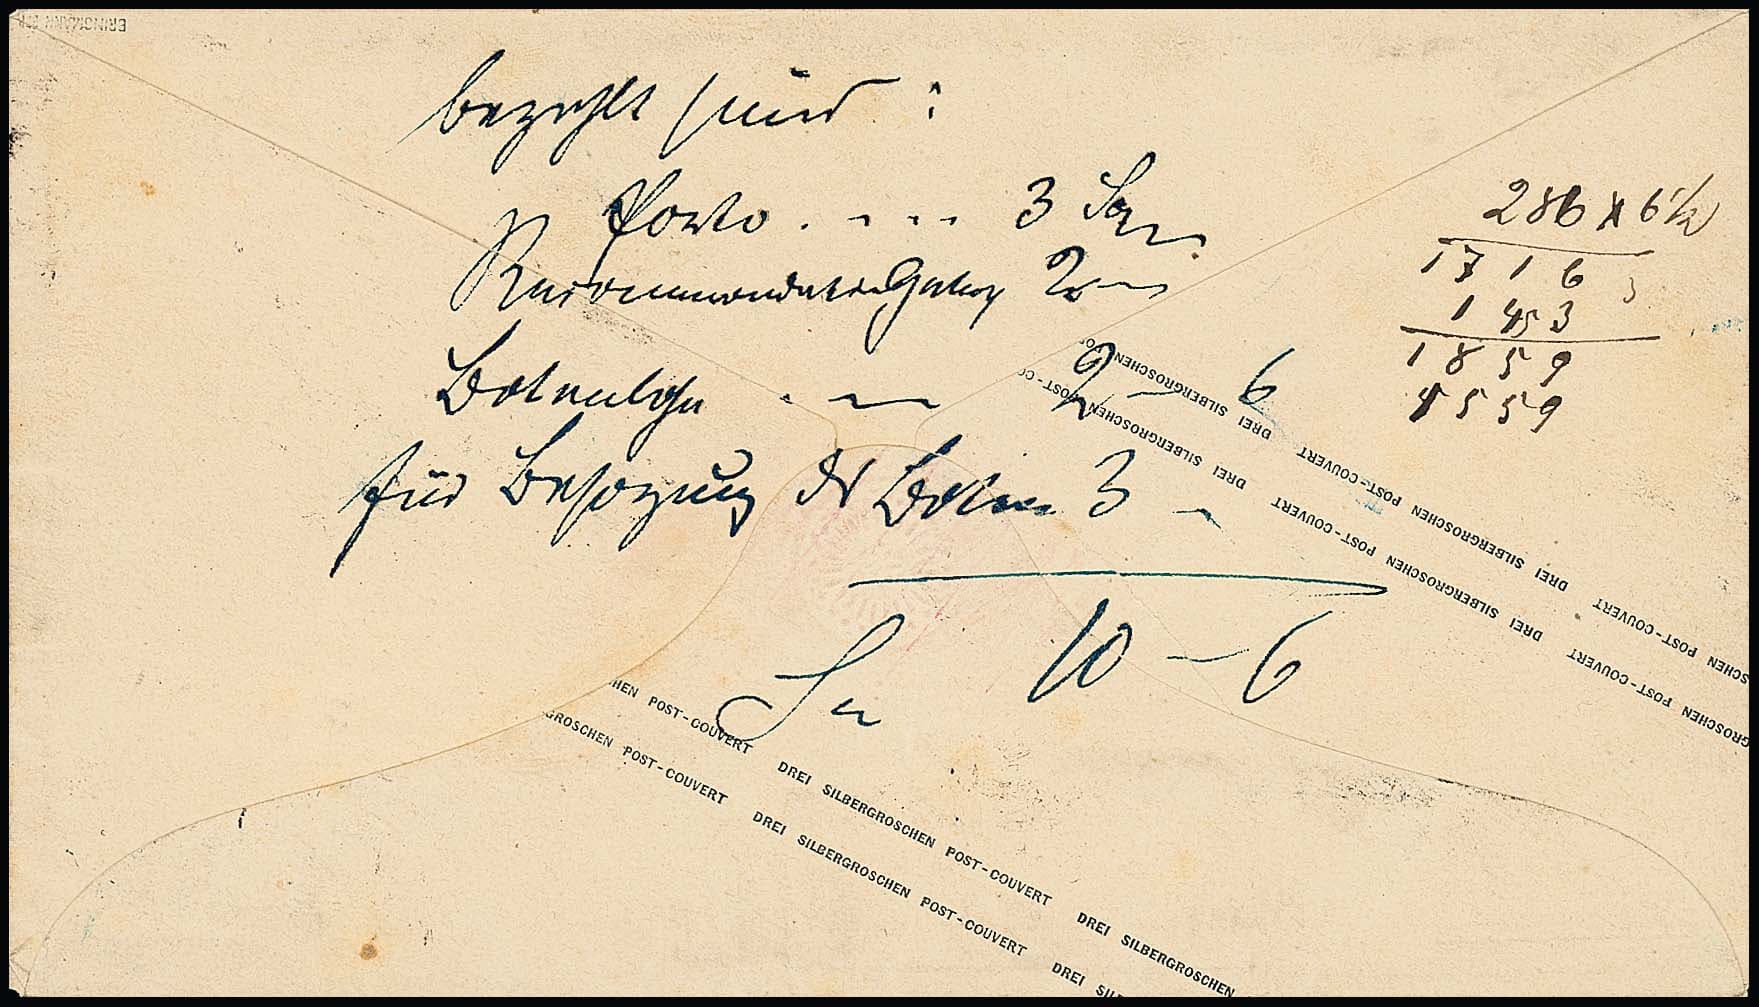 bezahlt sind :
Porto . - - - 3 Sgr
Recommandations Gebühr 2 " –
Botenlohn . – – 2 – 6
für Besorgung des Boten 3 –
Sa 10 – 6
286 x 6 1/2
1716
3
143
1859
4559
DREI SILBERGROSCHEN POST-COUVERT DREI SILBERGROSCHEN POST-COUVERT
POST-COUVERT DREI SILBERGROSCHEN POST-COUVERT DREI SILBERGROSCHEN
HEN POST-COUVERT DREI SILBERGROSCHEN POST-COUVERT DREI SILBERGROSCHEN
GROSCHEN POST-COUVERT DREI SILBERGROSCHEN POST-COUVERT DREI SIL